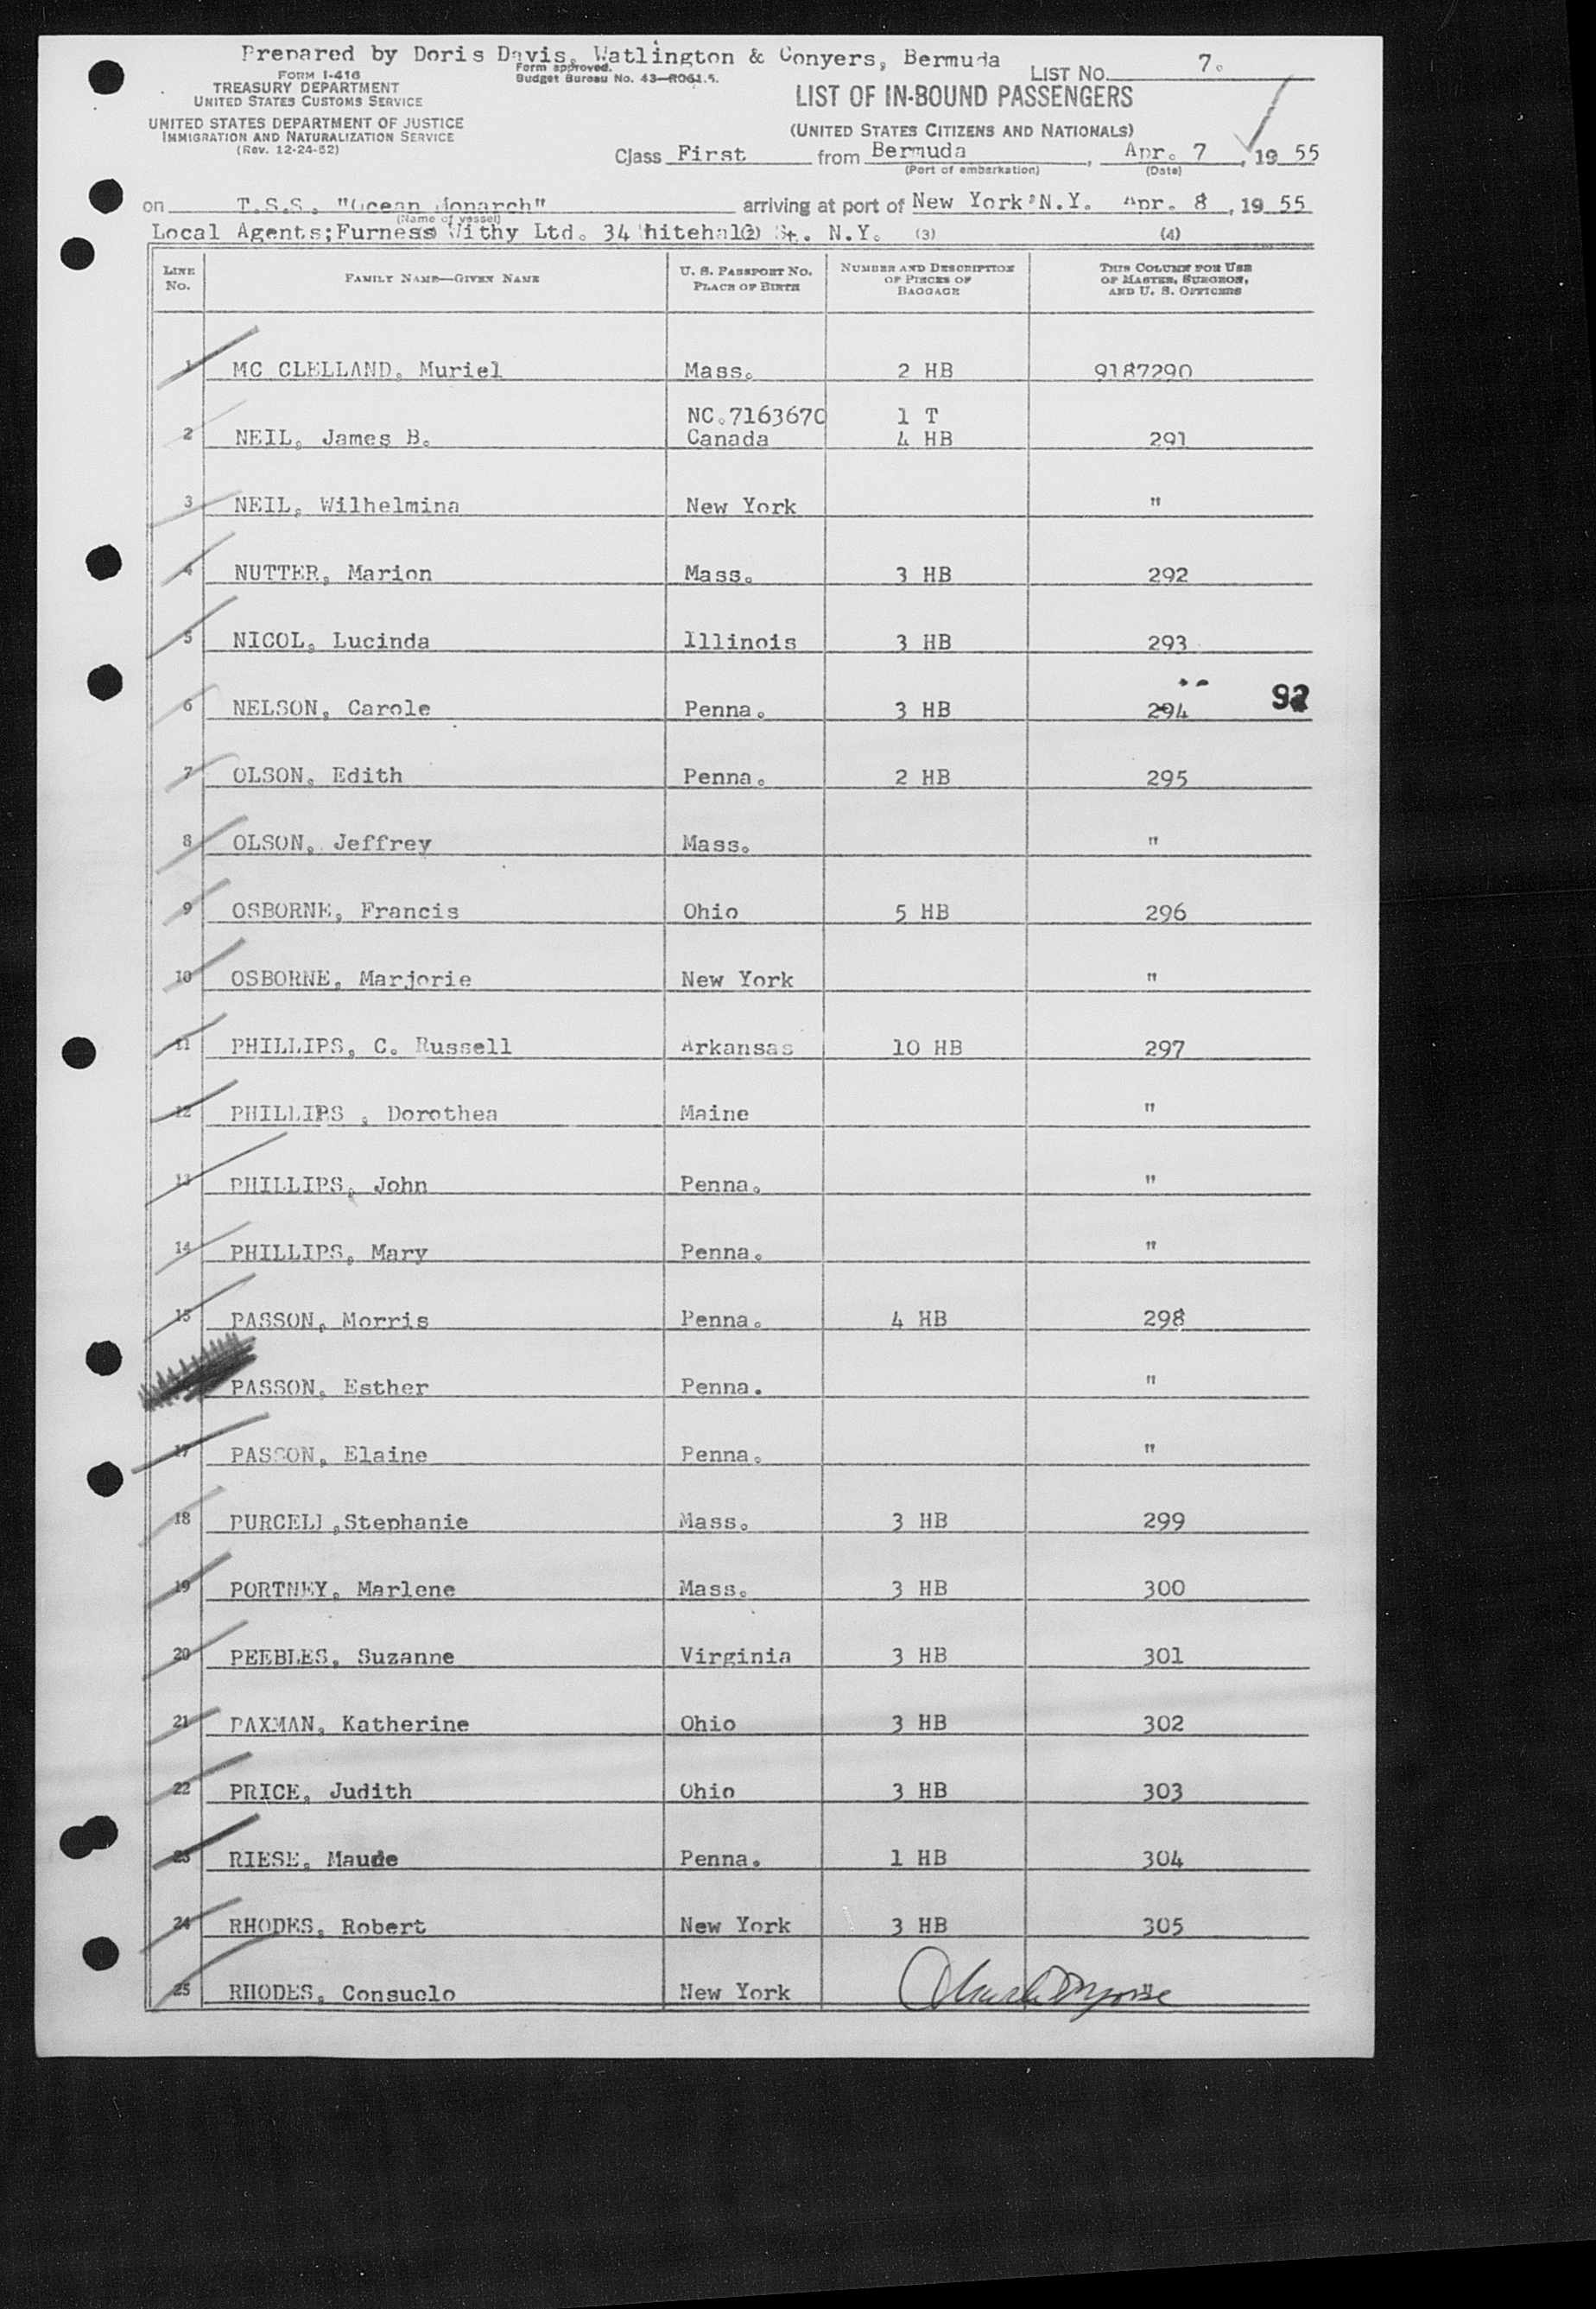 Prepared by Doris Davis, Watlington & Conyers, Bermuda
Form approved.
Budget Bureau No. 43-R061.5.
FORM I-416
TREASURY DEPARTMENT
UNITED STATES CUSTOMS SERVICE
UNITED STATES DEPARTMENT OF JUSTICE
IMMIGRATION AND NATURALIZATION SERVICE
(Rev. 12-24-52)
LIST No. 7.
LIST OF IN-BOUND PASSENGERS
(UNITED STATES CITIZENS AND NATIONALS)
Class First from Bermuda, Apr. 7, 19 55
(Port of embarkation) (Date)
on T.S.S. "Ocean Monarch" arriving at port of New York, N.Y. Apr. 8, 19 55
(Name of vessel)
Local Agents;Furness Withy Ltd. 34 Whitehall St. N.Y. (3) (4)
LINE No. FAMILY NAME—GIVEN NAME U. S. PASSPORT NO. PLACE OF BIRTH NUMBER AND DESCRIPTION OF PIECES OF BAGGAGE THIS COLUMN FOR USE OF MASTER, SURGEON, AND U. S. OFFICERS
1 MC CLELLAND, Muriel Mass. 2 HB 9187290
NC.7163670 1 T
2 NEIL, James B. Canada 4 HB 291
3 NEIL, Wilhelmina New York "
4 NUTTER, Marion Mass. 3 HB 292
5 NICOL, Lucinda Illinois 3 HB 293
6 NELSON, Carole Penna. 3 HB 294 92
7 OLSON, Edith Penna. 2 HB 295
8 OLSON, Jeffrey Mass. "
9 OSBORNE, Francis Ohio 5 HB 296
10 OSBORNE, Marjorie New York "
11 PHILLIPS, C. Russell Arkansas 10 HB 297
12 PHILLIPS , Dorothea Maine "
13 PHILLIPS, John Penna. "
14 PHILLIPS, Mary Penna. "
15 PASSON, Morris Penna. 4 HB 298
PASSON, Esther Penna. "
17 PASSON, Elaine Penna. "
18 PURCELL,Stephanie Mass. 3 HB 299
19 PORTNEY, Marlene Mass. 3 HB 300
20 PEEBLES, Suzanne Virginia 3 HB 301
21 PAXMAN, Katherine Ohio 3 HB 302
22 PRICE, Judith Ohio 3 HB 303
23 RIESE, Maude Penna. 1 HB 304
24 RHODES, Robert New York 3 HB 305
25 RHODES, Consuelo New York "